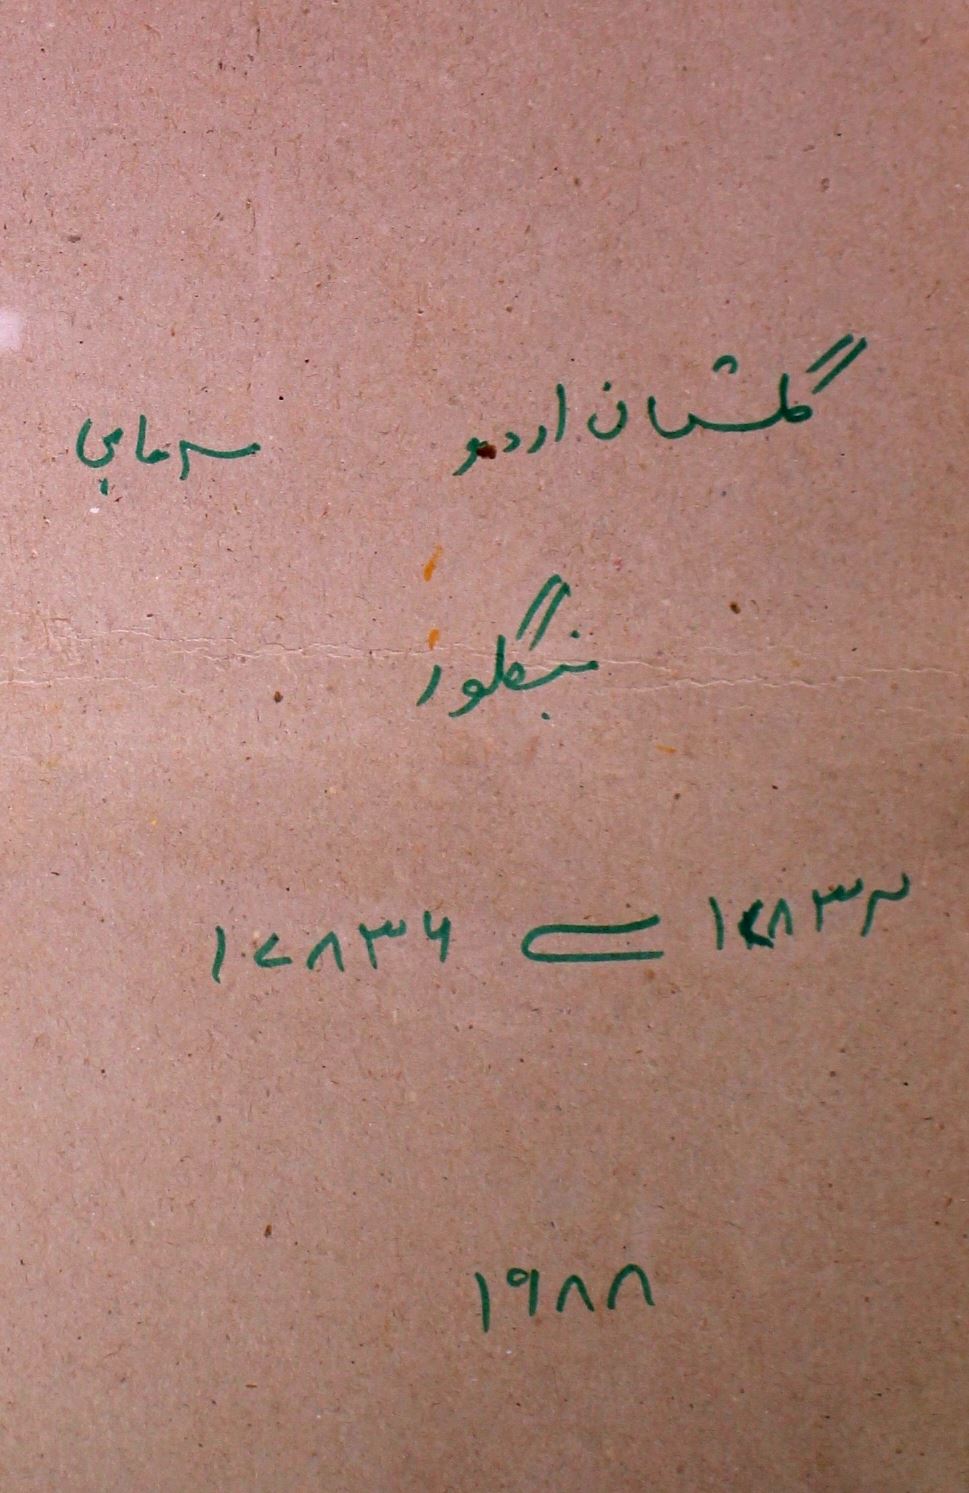 گلستان اردو سہ ماہی
بنگلور
۱۷۸۳۲ سے ۱۷۸۳۶
۱۹۸۸